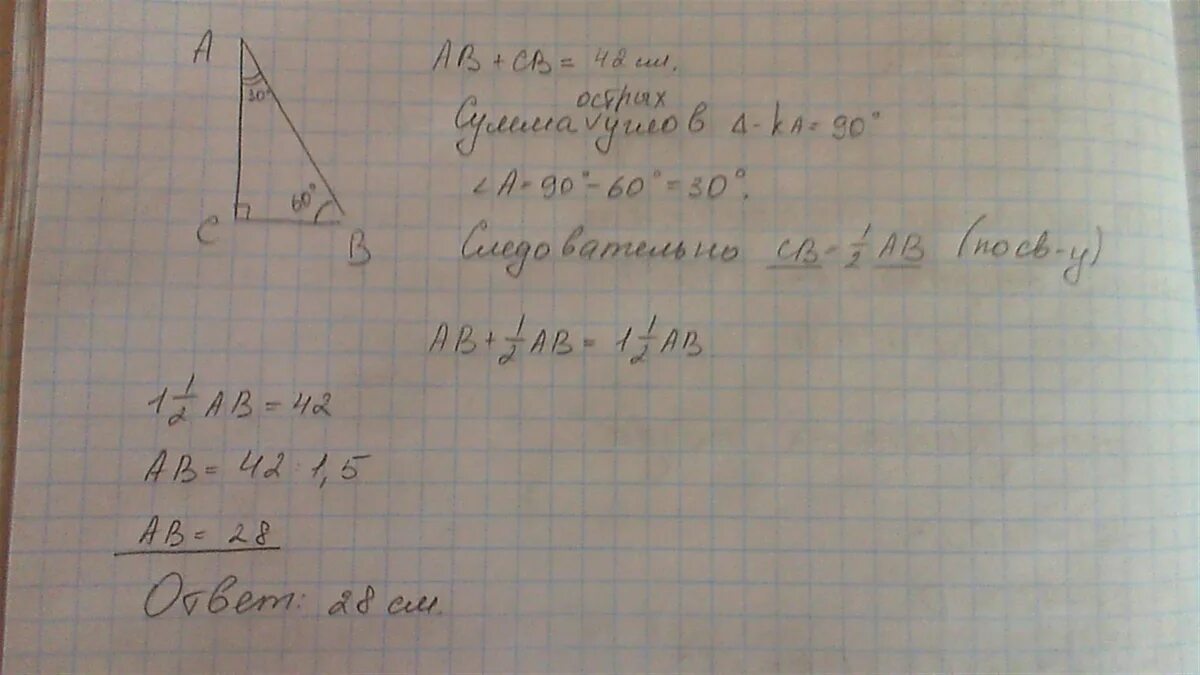 A
30°
60°
C
B
AB + CB = 42 см.
острых
Сумма ∨ углов Δ-ка = 90°
∠A = 90° - 60° = 30°.
Следовательно CB = 1/2 AB (по св-у)
AB + 1/2 AB = 1 1/2 AB
1 1/2 AB = 42
AB = 42 : 1,5
AB = 28
Ответ: 28 см.